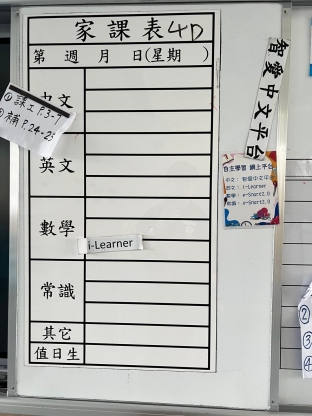 家課表4D
第 週 月 日(星期 )
中文
① 課工 P.3-
補 P.24-25
英文
數學
i-Learner
常識
其它
值日生
智愛中文平台
自主學習 網上平台
中文：智愛中文平台
英文：i-Learner
數學：e-Smart2.0
常識：e-Smart2.0
②
③
④